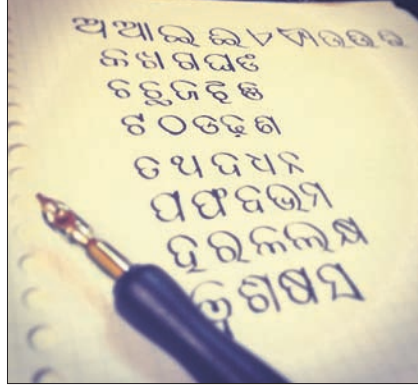 ଅ ଆ ଇ ଈ
କ ଖ ଗ ଘ ଙ
ଚ ଛ ଜ ଝ ଞ
ଟ ଠ ଡ ଢ ଣ
ତ ଥ ଦ ଧ ନ
ପ ଫ ବ ଭ ମ
ହ ର ଳ ଲ କ୍ଷ
ଶ ଷ ସ